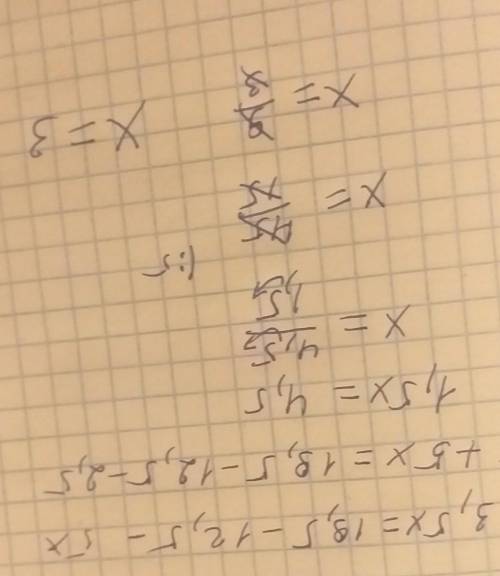 3,5x=18,5-12,5- 5x
+5x=18,5-12,5-2,5
1,5x=4,5
x=4,5/1,5
x=45/15 |:5
x=9/3
x=3